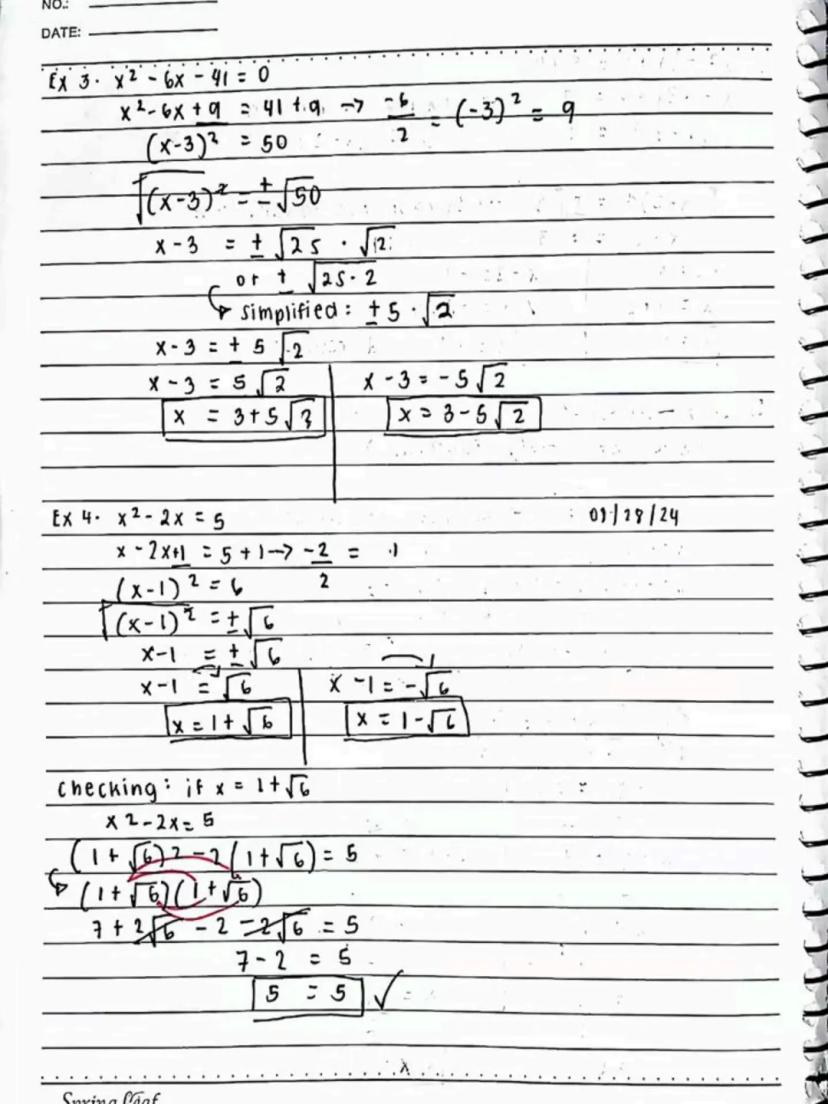 NO.:
DATE:
Ex 3. x² - 6x - 41 = 0
x² - 6x + 9 = 41 + 9 → -6/2 = (-3)² = 9
(x-3)² = 50
√(x-3)² = ±√50
x - 3 = ± √25 · √2
or ± √25·2
↳ simplified: ± 5 · √2
x - 3 = ± 5 √2
x - 3 = 5 √2 x - 3 = -5 √2
x = 3 + 5 √2 x = 3 - 5 √2
Ex 4. x² - 2x = 5 01/28/24
x - 2x + 1 = 5 + 1 → -2/2 = 1
(x-1)² = 6
√(x-1)² = ±√6
x-1 = ±√6
x-1 = √6 x-1 = -√6
x = 1 + √6 x = 1 - √6
checking: if x = 1 + √6
x² - 2x = 5
(1 + √6)² - 2(1 + √6) = 5
↳ (1 + √6)(1 + √6)
7 + 2√6 - 2 - 2√6 = 5
7 - 2 = 5
5 = 5 ✓
Spring Leaf